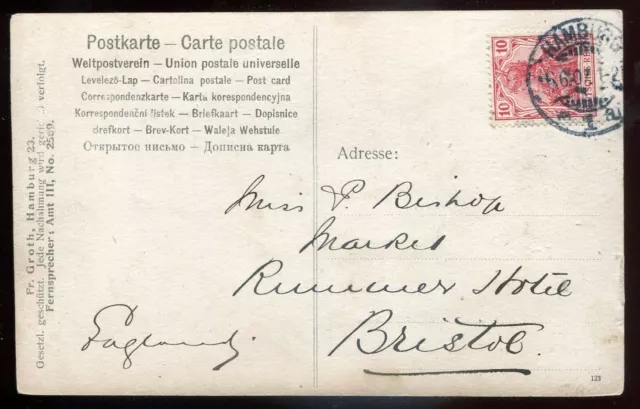 Postkarte — Carte postale
Weltpostverein — Union postale universelle
Levelező-Lap — Cartolina postale — Post card
Correspondenzkarte — Karta korespondencyjna
Korrespondenční lístek — Briefkaart — Dopisnice
Brefkort — Brev-Kort — Waleja Wehstule
Открытое письмо — Дописна карта
10 10
HAMBURG
1
Adresse:
Miss P. Bishop
Market
Rummer Hotel
Bristol
England
Fr. Groth, Hamburg 23.
Gesetzl. geschützt. Jede Nachahmung wird verfolgt.
Fernsprecher: Amt III, No. 2569.
123